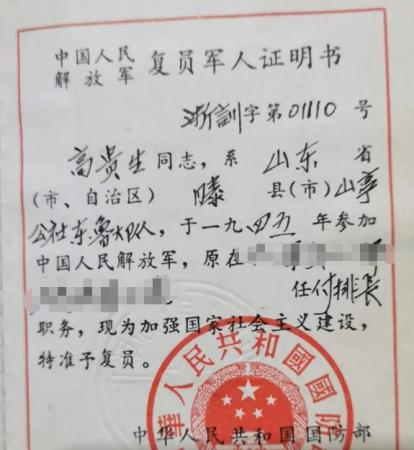 中国人民
解放军 复员军人证明书
浙訓字第01110号
高贵生同志，系 山东 省
（市、自治区） 滕 县（市）山亭
公社东鲁大队人，于一九四五年参加
中国人民解放军，原在
任付排长
职务，现为加强国家社会主义建设，
特准予复员。
中华人民共和国国防部
中华人民共和國國防